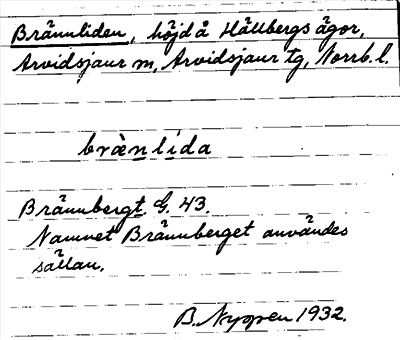 Brännliden, höjd å Hällbergs ägor,
Arvidsjaur sn, Arvidsjaur tg, Norrb. l.
bræ̀nlída
Brännbergt. G. 43.
Namnet Brännberget användes
sällan.
B. Nyppen 1932.